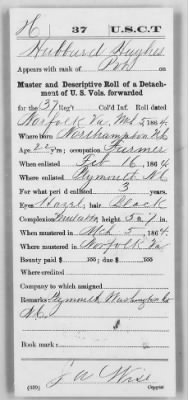 H | 37 | U.S.C.T
Hubbard Hughes
Appears with rank of Pvt on
Muster and Descriptive Roll of a Detach-
ment of U. S. Vols. forwarded
for the 37 Reg't Col'd Inf. Roll dated
Norfolk Va, Mch 5, 1864.
Where born Northampton
Age 22 y'rs; occupation Farmer
When enlisted Feb 16, 1864
Where enlisted Plymouth N.C
For what period enlisted 3 years.
Eyes Hazel; hair Black
Complexion; height 5 ft. 7 in.
When mustered in Mch 5, 1864
Where mustered in Norfolk Va
Bounty paid $ 100; due $ 100
Where credited
Company to which assigned
Remarks: Plymouth, Washington Co
N.C.
Book mark:
J W Wise
(339) Copyist.